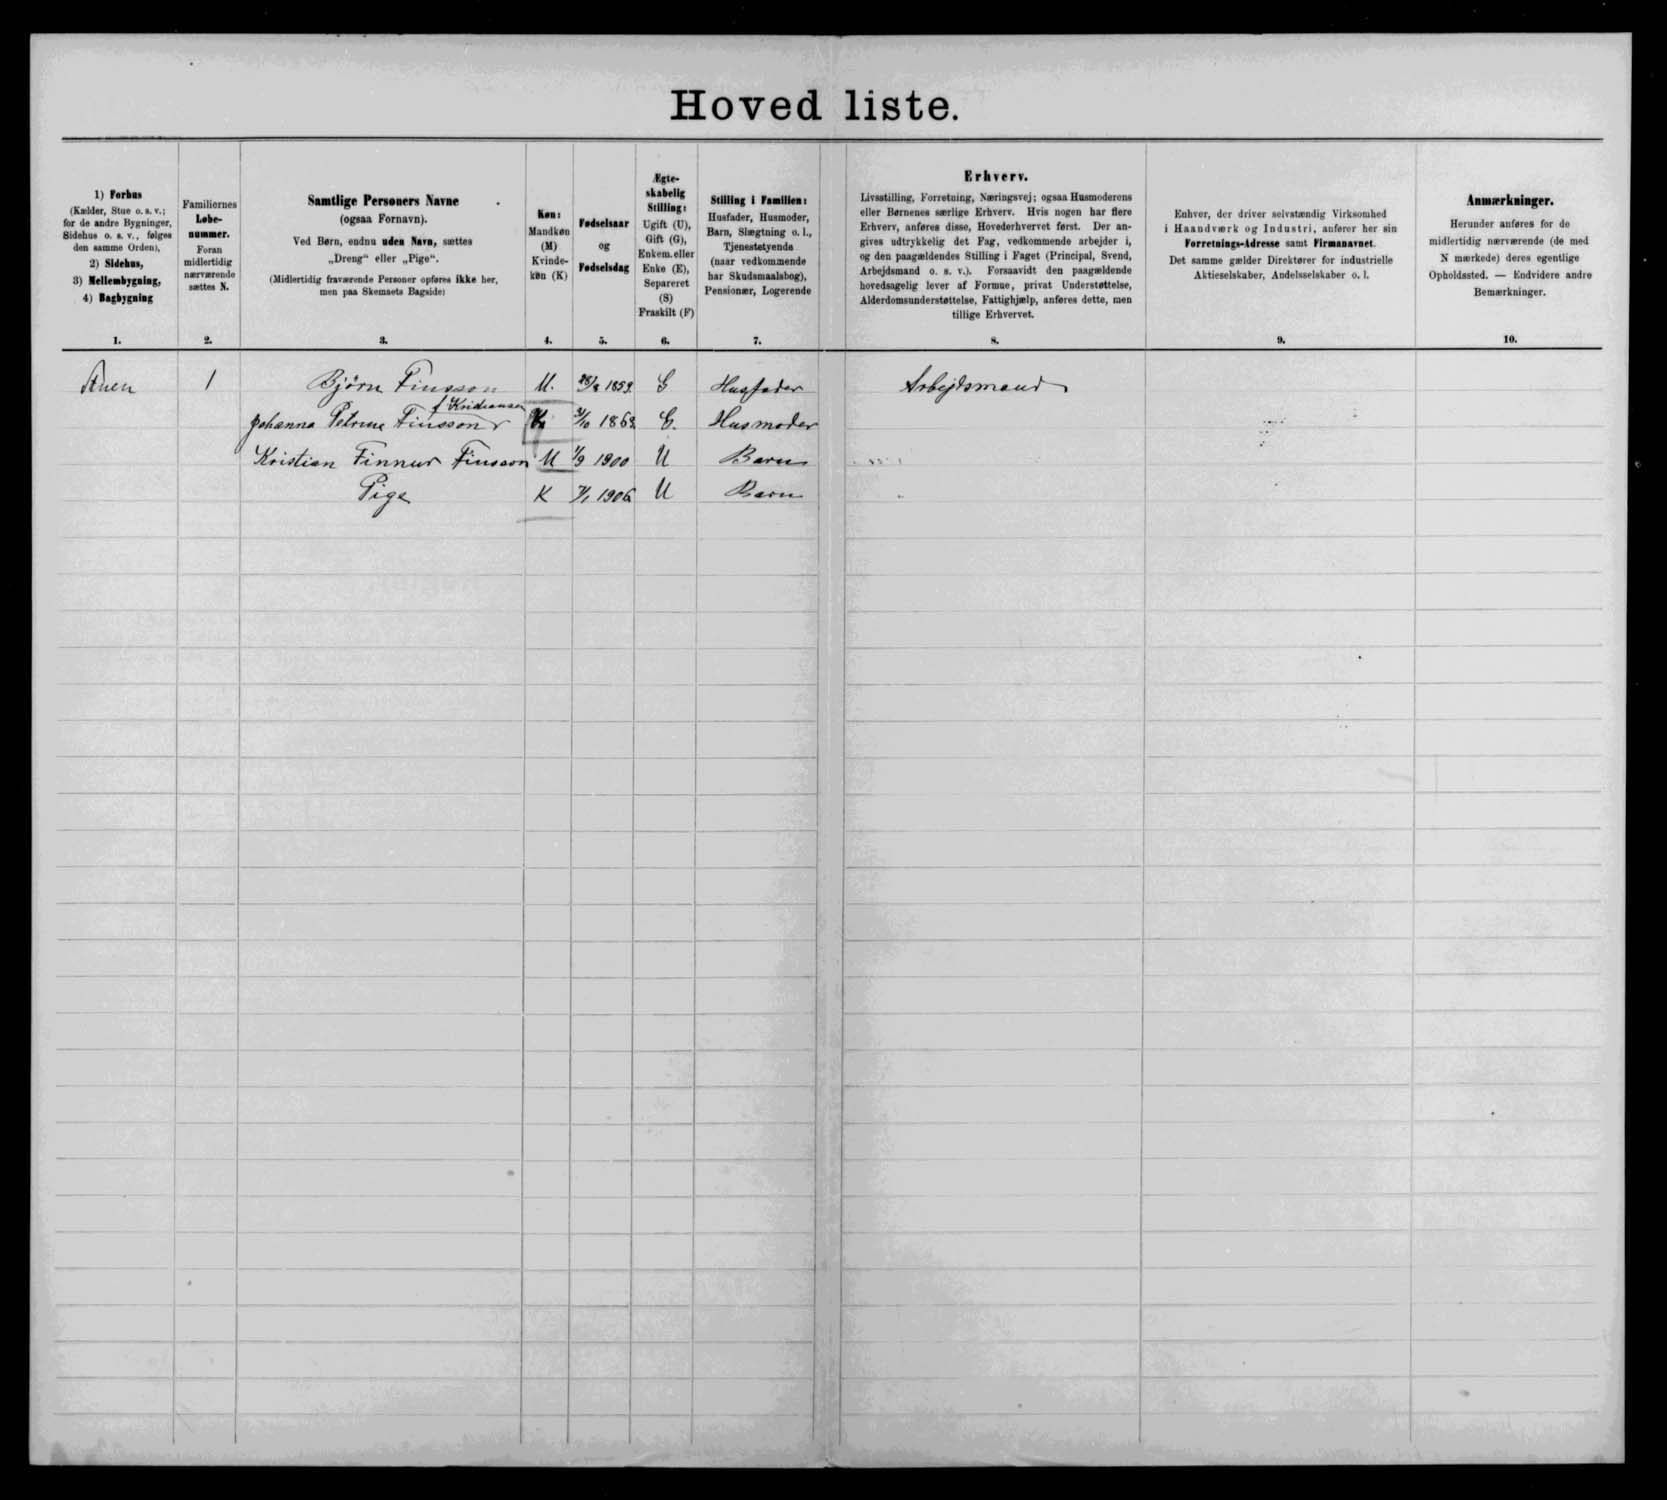 Hoved liste.
1) Forhus
(Kælder, Stue o. s. v.;
for de andre Bygninger,
Sidehus o. s. v., følges
den samme Orden),
2) Sidehus,
3) Mellembygning,
4) Bagbygning
1.
Familiernes
Løbe-
nummer.
Foran
midlertidig
nærværende
sættes N.
2.
Samtlige Personers Navne
(ogsaa Fornavn).
Ved Børn, endnu uden Navn, sættes
„Dreng“ eller „Pige“.
(Midlertidig fraværende Personer opføres ikke her,
men paa Skemaets Bagside)
3.
Køn:
Mandkøn
(M)
Kvinde-
køn (K)
4.
Fødselsaar
og
Fødselsdag
5.
Ægte-
skabelig
Stilling:
Ugift (U),
Gift (G),
Enkem. eller
Enke (E),
Separeret
(S)
Fraskilt (F)
6.
Stilling i Familien:
Husfader, Husmoder,
Barn, Slægtning o. l.,
Tjenestetyende
(naar vedkommende
har Skudsmaalsbog),
Pensionær, Logerende
7.
Erhverv.
Livsstilling, Forretning, Næringsvej; ogsaa Husmoderens
eller Børnenes særlige Erhverv. Hvis nogen har flere
Erhverv, anføres disse, Hovederhvervet først. Der an-
gives udtrykkelig det Fag, vedkommende arbejder i,
og den paagældendes Stilling i Faget (Principal, Svend,
Arbejdsmand o. s. v.). Forsaavidt den paagældende
hovedsagelig lever af Formue, privat Understøttelse,
Alderdomsunderstøttelse, Fattighjælp, anføres dette, men
tillige Erhvervet.
8.
Enhver, der driver selvstændig Virksomhed
i Haandværk og Industri, anfører her sin
Forretnings-Adresse samt Firmanavnet.
Det samme gælder Direktører for industrielle
Aktieselskaber, Andelsselskaber o. l.
9.
Anmærkninger.
Herunder anføres for de
midlertidig nærværende (de med
N mærkede) deres egentlige
Opholdssted. — Endvidere andre
Bemærkninger.
10.
Stuen 1 Bjørn Finsson M. 28/8 1859 G Husfader Arbejdsmand
f Kristiansen
Johanna Petrine Finsson K /10 1863 G. Husmoder
Kristian Finnur Finsson M 1/9 1900 U Barn
Pige K 7/1 1906 U Barn